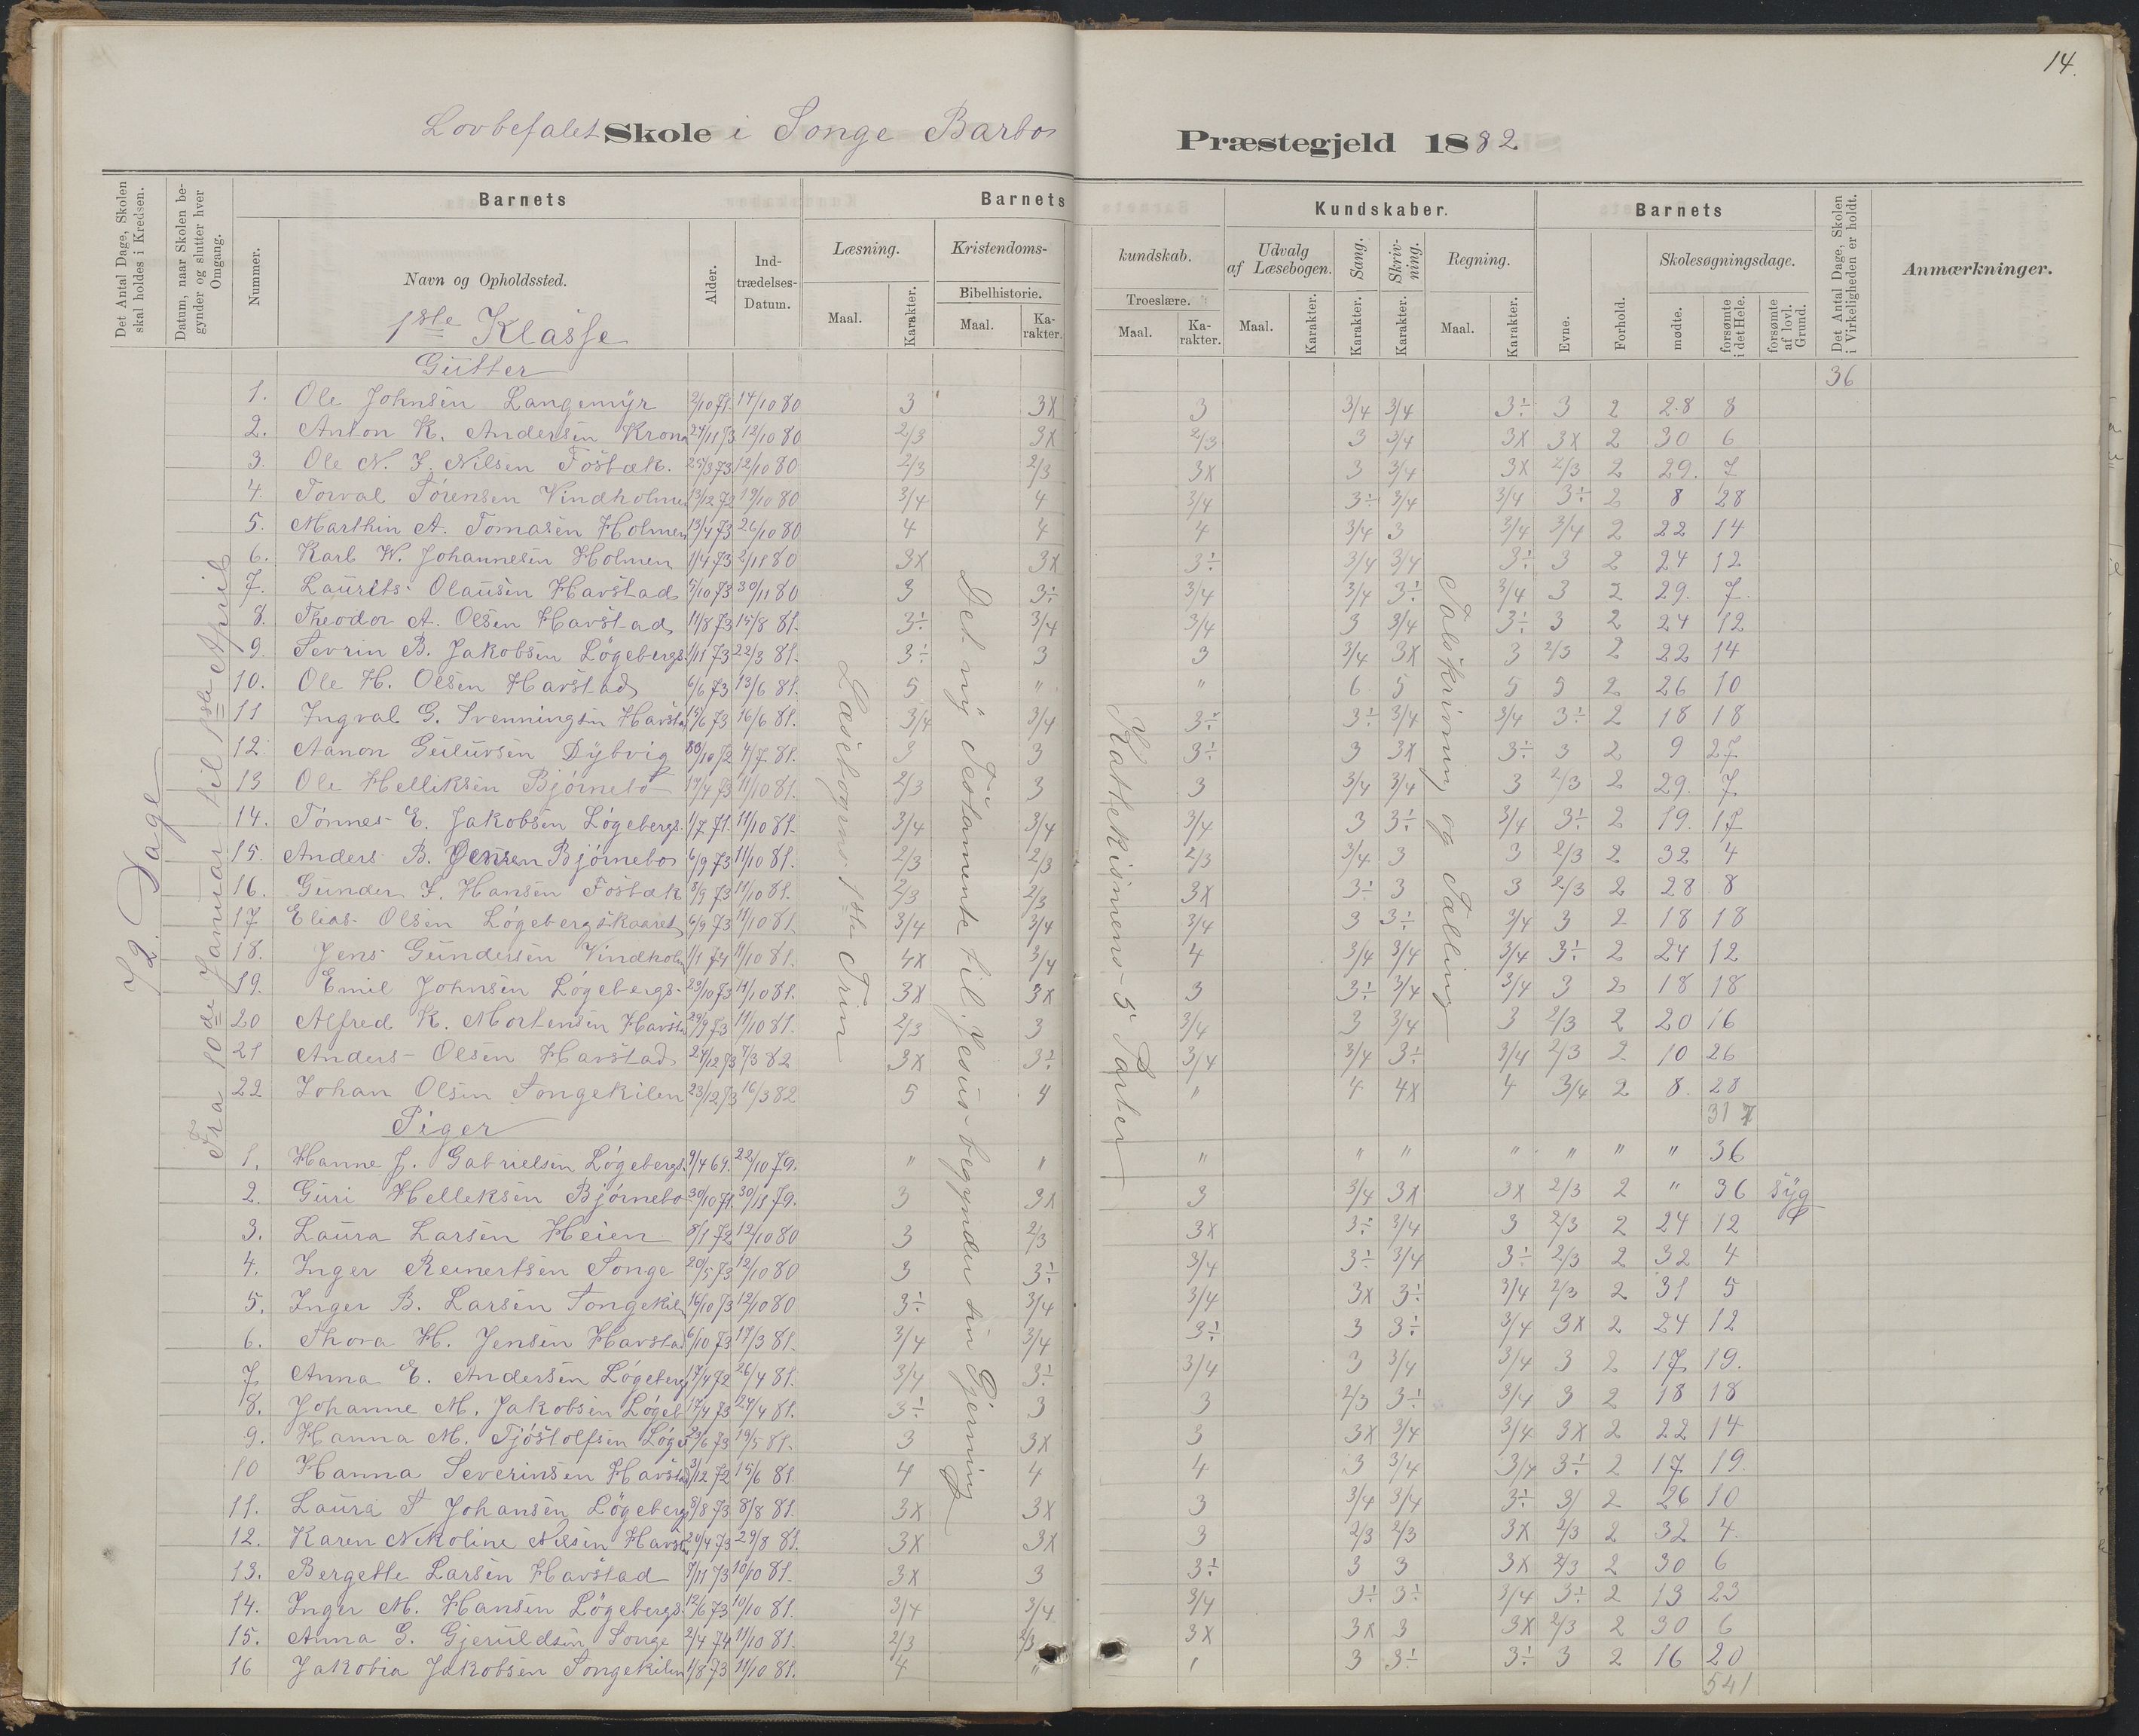 14.
Lovbefalet Skole i Songe Barbo Præstegjeld 1882
Det Antal Dage, Skolen skal holdes i Kredsen.
Datum, naar Skolen begynder og slutter hver Omgang.
Barnets
Nummer.
Navn og Opholdssted.
Alder.
Indtrædelses-Datum.
Barnets Kundskaber.
Læsning.
Maal.
Karakter.
Kristendomskundskab.
Bibelhistorie.
Maal.
Karakter.
Troeslære.
Maal.
Karakter.
Udvalg af Læsebogen.
Maal.
Karakter.
Sang.
Karakter.
Skrivning.
Karakter.
Regning.
Maal.
Karakter.
Barnets
Evne.
Forhold.
Skolesøgningsdage.
mødte.
forsømte i det Hele.
forsømte af lovl. Grund.
Det Antal Dage, Skolen i Virkeligheden er holdt.
Anmærkninger.
72 Dage
Fra 10de Januar til 1ste April
Læsebogens 1ste Trin
Det ny Testamente til Jesus begynder sin Gjerning
Kathekismens 5 Parter
Talskrivning og Tælling
1ste Klasse
Gutter
36
1. Ole Johnsen Langemyr 2/10 71. 14/10 80 3 3x 3 3/4 3/4 3÷ 3 2 28 8
2. Anton K. Andersen Krona 24/11 73 12/10 80 2/3 3x 2/3 3 3/4 3x 3x 2 30 6
3. Ole N. F. Nilsen Fosbæk. 25/3 73 12/10 80 2/3 2/3 3x 3 3/4 3x 2/3 2 29. 7
4. Torval Sørensen Vindholmen 13/12 72 19/10 80 3/4 4 3/4 3÷ 3/4 3/4 3÷ 2 8 28
5. Marthin A. Tomasen Holmen 13/4 73 26/10 80 4 4 4 3/4 3 3/4 3/4 2 22 14
6. Karl W. Johannesen Holmen 1/4 73 2/11 80 3x 3x 3÷ 3/4 3/4 3÷ 3 2 24 12
7. Laurits Olausen Havstad 5/10 73 30/11 80 3 3÷ 3/4 3/4 3÷ 3/4 3 2 29. 7.
8. Theodor A. Olsen Havstad 11/8 73 15/8 81. 3÷ 3/4 3/4 3 3/4 3÷ 3 2 24 12
9. Sevrin B. Jakobsen Løgebergs. 1/11 73 22/3 81. 3÷ 3 3 3/4 3x 3 2/3 2 22 14
10. Ole H. Olsen Havstad 6/6 73 13/6 81. 5 " " 6 5 5 5 2 26 10
11 Ingval G. Svenningsen Havsta 15/6 73 16/6 81. 3/4 3/4 3÷ 3÷ 3/4 3/4 3÷ 2 18 18
12. Aanon Guluvsen Dybvig 30/10 72 4/7 81. 3 3 3÷ 3 3x 3÷ 3 2 9 27
13 Ole Helliksen Bjørnebo 17/4 73 11/10 81. 2/3 3 3 3/4 3/4 3 2/3 2 29. 7.
14. Tønnes E. Jakobsen Løgebergs. 1/7 71. 11/10 81. 3/4 3/4 3/4 3 3÷ 3/4 3÷ 2 19. 17
15. Anders B. Jensen Bjørnebo 6/9 73 11/10 81. 2/3 2/3 2/3 3/4 3 3 2/3 2 32 4
16. Gunder F. Hansen Fosbæk 8/9 73 11/10 81. 2/3 2/3 3x 3÷ 3 3 2/3 2 28 8
17 Elias Olsen Løgebergskaaret 6/9 73 11/10 81. 3/4 3/4 3/4 3 3÷ 3/4 3 2 18 18
18. Jens Gundersen Vindholm 1/1 74 11/10 81. 4x 3/4 4 3/4 3/4 3/4 3÷ 2 24 12
19. Emil Johnsen Løgebergs- 23/10 73 11/10 81. 3x 3x 3 3÷ 3/4 3/4 3 2 18 18
20 Alfred K. Mortensen Havsta 29/9 73 11/10 81. 2/3 3 3/4 3 3/4 3 2/3 2 20 16
21 Anders Olsen Havstad 27/12 73 7/3 82 3x 3÷ 3/4 3/4 3÷ 3/4 2/3 2 10 26
22 Johan Olsen Songekilen 23/12 73 16/3 82 5 4 " 4 4x 4 3/4 2 8. 28
317
Piger
1. Hanne J. Gabrielsen Løgebergs. 9/4 69. 22/10 79. " " " " " " " " " 36
2. Guri Helleksen Bjørnebo 30/10 71. 30/11 79. 3 3x 3 3/4 3x 3x 2/3 2 " 36 syg
3. Laura Larsen Heien 8/1 72 12/10 80 3 2/3 3x 3÷ 3/4 3 2/3 2 24 12
4. Inger Reinertsen Songe 20/5 73 12/10 80 3 3÷ 3/4 3÷ 3/4 3÷ 2/3 2 32 4
5. Inger B. Larsen Songekil 16/10 73 12/10 80 3÷ 3/4 3/4 3x 3÷ 3/4 2/3 2 31 5
6. Thora H. Jensen Havstad 6/10 73 17/3 81. 3/4 3/4 3÷ 3 3÷ 3/4 3x 2 24 12
7 Anna E. Andersen Løgeberg 17/4 72 26/4 81. 3/4 3÷ 3/4 3 3/4 3/4 3 2 17 19.
8. Johanne M. Jakobsen Løgeb 17/4 73 27/4 81. 3÷ 3 3 2/3 3÷ 3/4 3 2 18 18
9. Hanna M. Tjøstolfsen Løge 23/6 73 19/5 81. 3 3x 3 3x 3/4 3/4 3x 2 22 14
10 Hanna Severinsen Havstad 3/12 72 15/6 81. 4 4 4 3 3/4 3/4 3÷ 2 17 19.
11. Laura S Johansen Løgeberg 8/8 73 8/8 81. 3x 3x 3 3/4 3/4 3÷ 3/ 2 26 10
12. Karen Nikoline Nilsen Havst 20/4 73 29/8 81. 3x 3x 3 2/3 2/3 3x 2/3 2 32 4.
13. Bergette Larsen Havstad 7/11 73 10/10 81. 3x 3 3÷ 3 3 3x 2/3 2 30 6
14. Inger M. Hansen Løgebergs. 12/6 73 10/10 81. 3/4 3/4 3/4 3÷ 3÷ 3/4 3÷ 2 13 23
15. Anna G. Gjeruldsen Songe 2/4 74 11/10 81. 2/3 2/3 3x 3x 3 3x 2/3 2 30 6
16 Jakobia Jakobsen Songekilen 1/8 73 11/10 81. 4 " 3 3÷ 3÷ 3 2 16 20
541